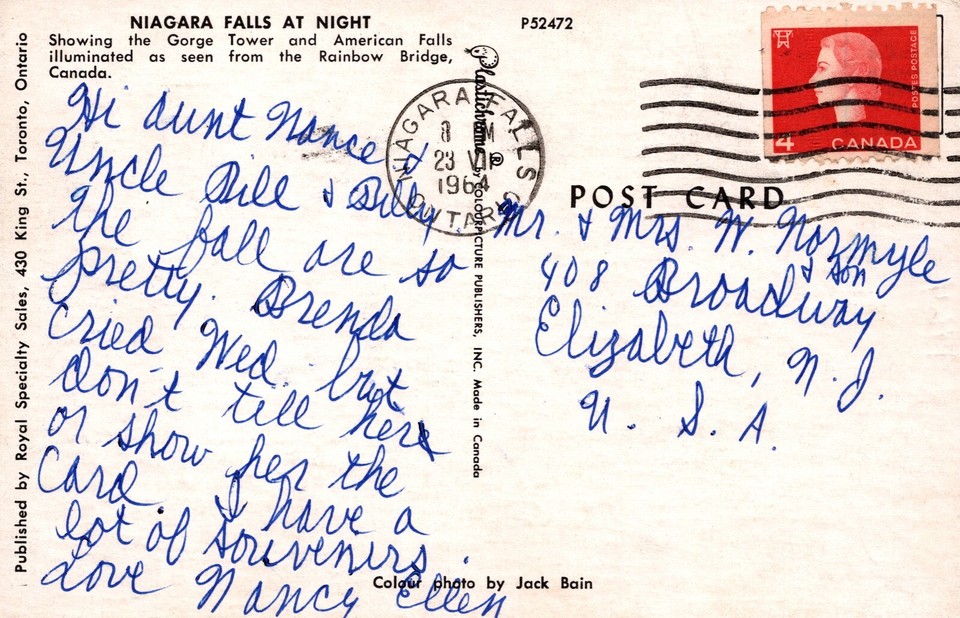 NIAGARA FALLS AT NIGHT
Showing the Gorge Tower and American Falls
illuminated as seen from the Rainbow Bridge,
Canada.
P52472
Published by Royal Specialty Sales, 430 King St., Toronto, Ontario
Hi Aunt Nance &
Uncle Bill & Billy.
The fall are so
pretty. Brenda
cried Wed. but
don't tell here
or show her the
Card I have a
lot of souvenirs.
Love Nancy Ellen
Plastichrome ® by COLOURPICTURE PUBLISHERS, INC. Made in Canada
NIAGARA FALLS
23 VI
1964
ONTARIO
POSTES POSTAGE
4 CANADA
POST CARD
Mr. & Mrs. W. Normyle
& son
408 Broadway
Elizabeth, N. J.
U. S. A.
Colour photo by Jack Bain